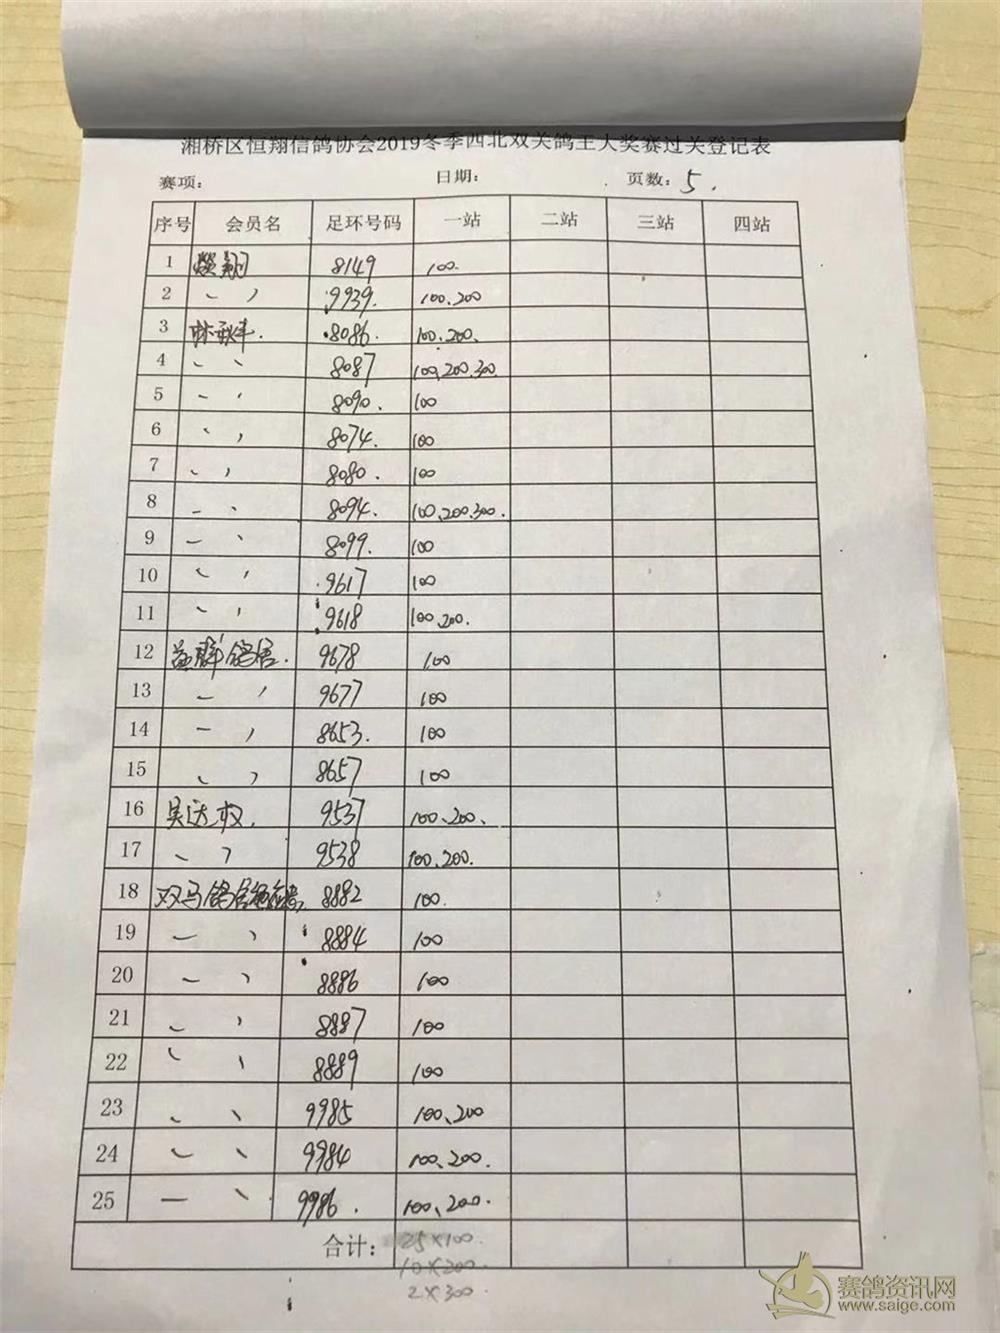 湘桥区恒翔信鸽协会2019冬季西北双关鸽王大奖赛过关登记表
赛项： 日期： 页数：5.
序号 会员名 足环号码 一站 二站 三站 四站
1 燚翔 8149 100.
2 〃 9939. 100、200
3 林秋丰. 8086. 100、200.
4 〃 8087 100、200、300.
5 〃 8090. 100
6 〃 8074. 100
7 〃 8080. 100
8 〃 8094. 100、200、300.
9 〃 8099. 100
10 〃 9617 100
11 〃 9618 100、200.
12 益群鸽居. 9678 100
13 〃 9677 100
14 〃 8653. 100
15 〃 8657 100
16 吴达权. 9537 100、200.
17 〃 9538 100、200.
18 双马鸽居 8882 100.
19 〃 8884 100
20 〃 8886 100
21 〃 8887 100
22 〃 8889 100
23 〃 9985 100、200
24 〃 9984 100、200.
25 〃 9986. 100、200.
合计： 25×100.
10×200.
2×300
赛鸽资讯网
www.saige.com